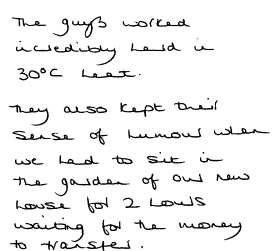 The guys worked
incredibly hard in
30°C heat.
They also kept their
sense of humour when
we had to sit in
the garden of our new
house for 2 hours
waiting for the money
to transfer.